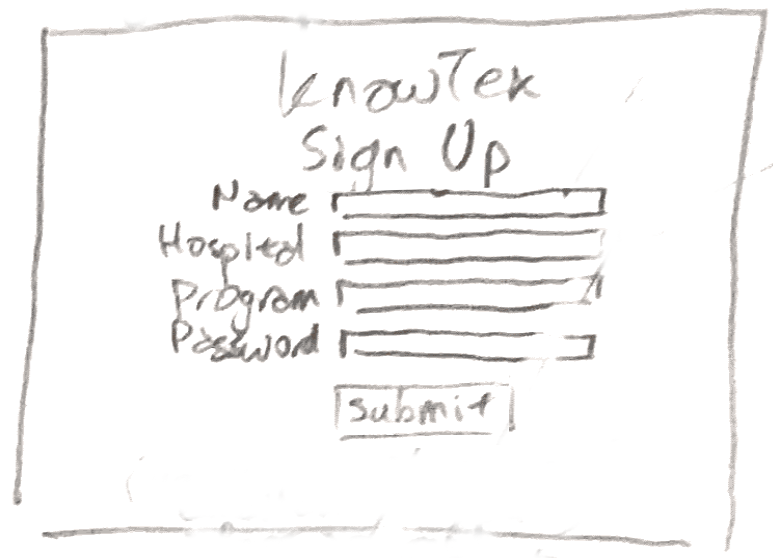 KnowTek
Sign Up
Name
Hospital
Program
Password
submit